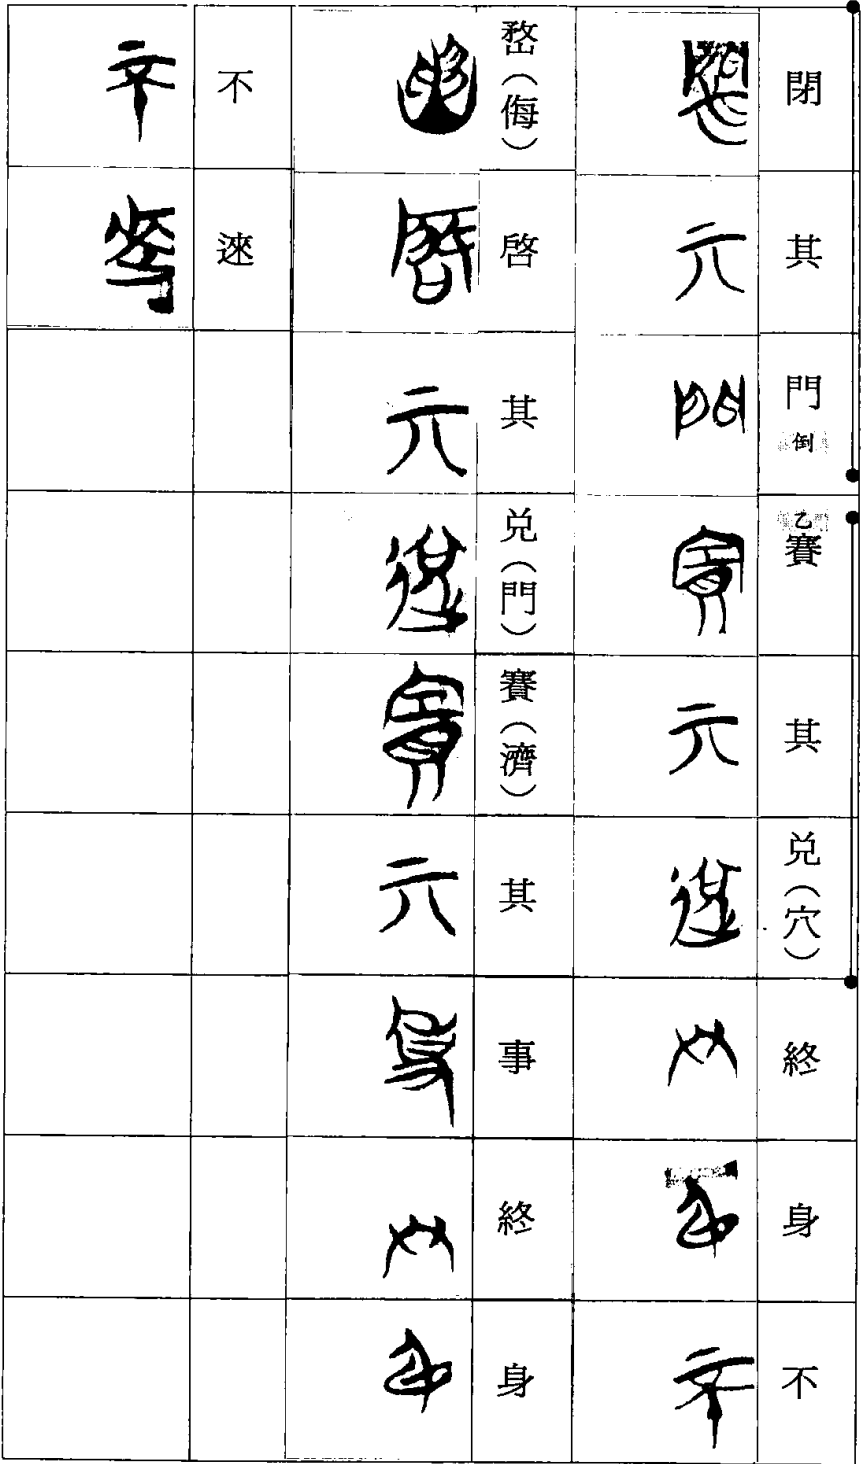 閉其門倒乙賽其兌（穴）終身不
嵍（侮）啓其兌（門）賽（濟）其事終身
不逨